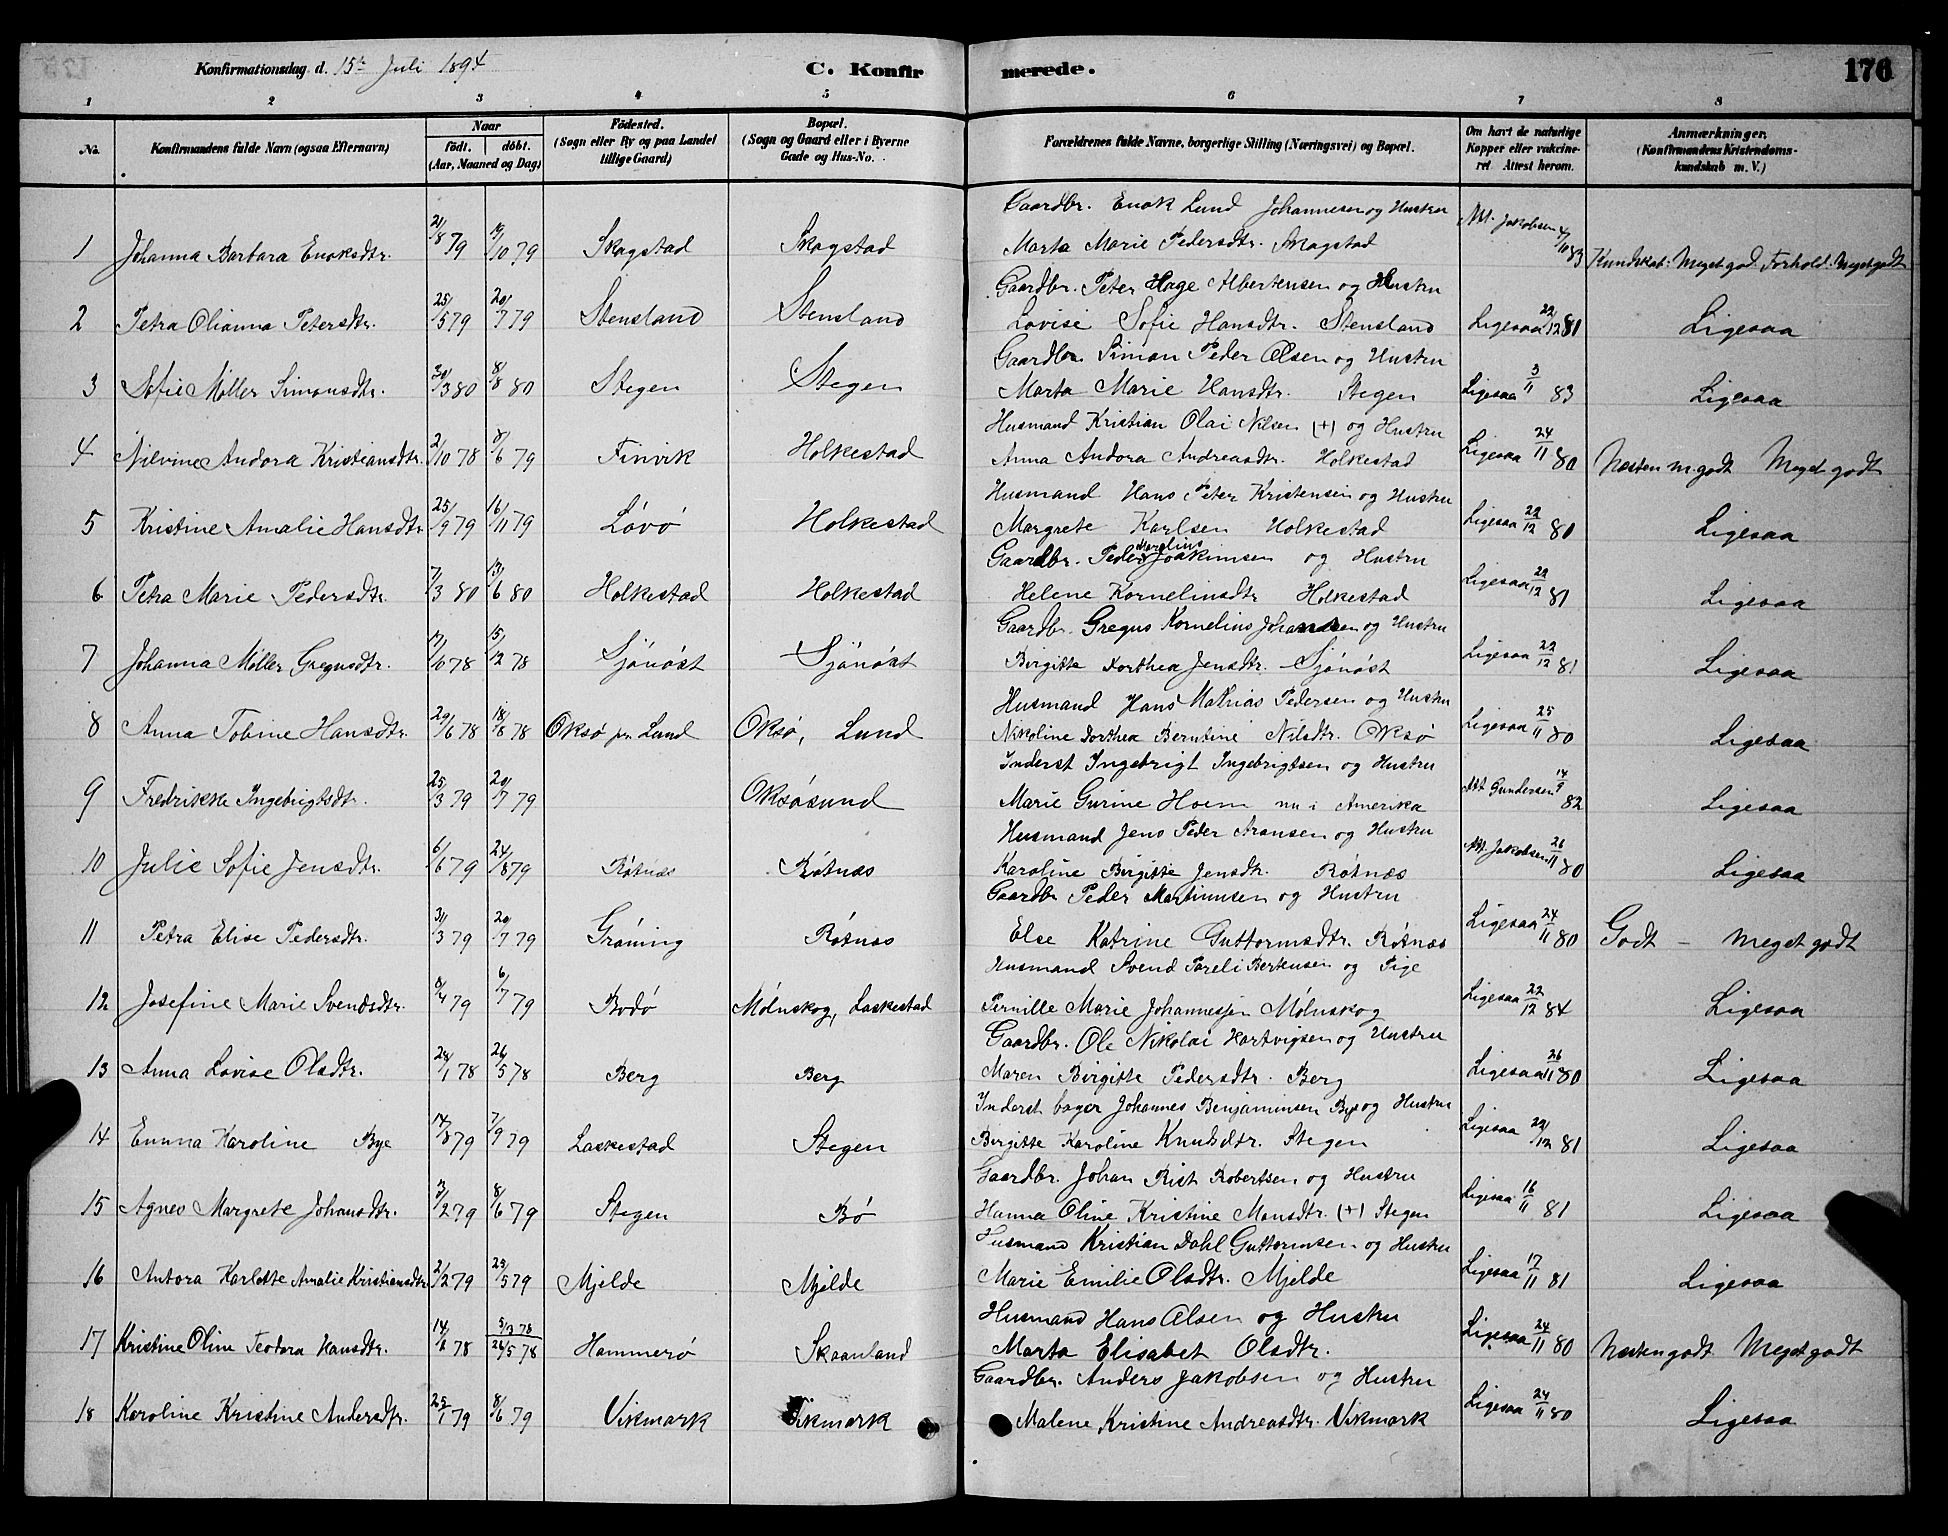 Konfirmationsdag d. 15de Juli 1894 C. Konfirmerede. 176
1 2 3 4 5 6 7 8
No. Konfirmandens fulde Navn (ogsaa Efternavn) Naar født. døbt. (Aar, Maaned og Dag) Födested. (Sogn eller By og paa Landet tillige Gaard) Bopæl. (Sogn og Gaard eller i Byerne Gade og Hus-No. Forældrenes fulde Navne, borgerlige Stilling (Næringsvei) og Bopæl. Om havt de naturlige Kopper eller vakcineret. Attest herom. Anmærkninger. (Konfirmandens Kristendomskundskab m. V.)
Gaardbr. Enok Lund Johannesen og Hustru
1 Johanna Barbara Enoksdtr. 21/8 79 19/10 79 Skogstad Skogstad Marta Marie Pedersdtr. Skogstad Att. Jakobsen 4/10 83 Kundskab: Meget god. Forhold: Meget godt
Gaardbr. Peter Hage Albertensen og Hustru
2 Petra Olianna Petersdtr. 25/5 79 20/7 79 Stensland Stensland Lovise Sofie Hansdtr. Stensland Ligesaa 22/12 81 Ligesaa
Gaardbr. Simon Peder Olsen og Hustru
3 Sofie Möller Simonsdtr. 30/3 80 8/8 80 Stegen Stegen Marta Marie Hansdtr. Stegen Ligesaa 3/11 83 Ligesaa
Husmand Kristian Olai Nilsen (+) og Hustru
4 Nilvine Andora Kristiansdtr. 2/10 78 8/6 79 Finvik Holkestad Anna Andora Andreasdtr. Holkestad Ligesaa 24/11 80 Næsten m. godt Meget godt
Husmand Hans Peter Kristensen og Hustru
5 Kristine Amalie Hansdtr. 25/9 79 16/11 79 Lövö Holkestad Margrete Karlsen Holkestad Ligesaa 22/12 80 Ligesaa
Gaardbr. Peder Marelius Joakimsen og Hustru
6 Petra Marie Pedersdtr. 7/3 80 13/6 80 Holkestad Holkestad Helene Kornelinsdtr Holkestad Ligesaa 22/12 81 Ligesaa
Gaardbr. Gregus Kornelius Johansen og Hustru
7 Johanna Möller Gregusdtr. 17/10 78 15/12 78 Sjönöst Sjönöst Birgitte Dorthea Jensdtr. Sjönöst Ligesaa 22/12 81 Ligesaa
Husmand Hans Mathias Pedersen og Hustru
8 Anna Tobine Hansdtr. 29/6 78 18/8 78 Oksö pr. Lund Oksö, Lund Nikoline Dorthea Berntine Nilsdtr. Oksö Ligesaa 25/11 80 Ligesaa
Inderst Ingebrigt Ingebrigtsen og Hustru
9 Fredrikke Ingebrigtsdtr. 25/3 79 20/7 79 Oksösund Marie Gurine Hoem nu i Amerika Att Gundersen 14/9 82 Ligesaa
Husmand Jens Peder Aronsen og Hustru
10 Julie Sofie Jensdtr. 6/6 79 24/8 79 Rötnæs Rötnæs Karoline Birgitte Jensdtr. Rötnæs Att. Jakobsen 26/11 80 Ligesaa
Gaardbr Peder Martinusen og Hustru
11 Petra Elise Pedersdtr. 31/3 79 20/7 79 Gröning Rötnæs Else Katrine Guttormsdtr. Rötnæs Ligesaa 24/11 80 Godt - Meget godt
Husmand Svend Pareli Berteusen og Pige
12 Josefine Marie Svendsdtr. 8/4 79 6/7 79 Bodö Mölnskog, Laskestad Pernille Marie Johannesen Mölnskog Ligesaa 22/12 84 Ligesaa
Gaardbr. Ole Nikolai Hartvigsen og Hustru
13 Anna Lovise Olsdtr. 28/1 78 26/5 78 Berg Berg Maren Birgitte Pedersdtr. Berg Ligesaa 26/11 80 Ligesaa
Inderst bager Johannes Benjaminsen Bye og Hustru
14 Emma Karoline Bye 17/8 79 7/9 79 Laskestad Stegen Birgitte Karoline Knudsdtr. Stegen Ligesaa 22/12 81 Ligesaa
Gaardbr. Johan Rist Robertsen og Hustru
15 Agnes Margrete Johansdtr. 3/2 79 8/6 79 Stegen Bö Hanna Oline Kristine Monsdtr. (+) Stegen Ligesaa 16/11 81 Ligesaa
Husmand Kristian Dahl Guttormsen og Hustru
16 Antora Karlotte Amalie Kristiansdtr 2/2 79 29/5 79 Mjelde Mjelde Marie Emilie Olsdtr. Mjelde Ligesaa 17/11 81 Ligesaa
Husmand Hans Olsen og Hustru
17 Kristine Oline Teodora Hansdtr. 14/2 78 5/3 78 26/5 78 Hammerö Skaanland Marta Elisabet Olsdtr. Ligesaa 24/11 80 Næsten godt. Meget godt
Gaardbr. Anders Jakobsen og Hustru
18 Karoline Kristine Andersdtr. 25/1 79 8/6 79 Vikmark Vikmark Malene Kristine Andreasdtr. Vikmark Ligesaa 24/11 80 Ligesaa